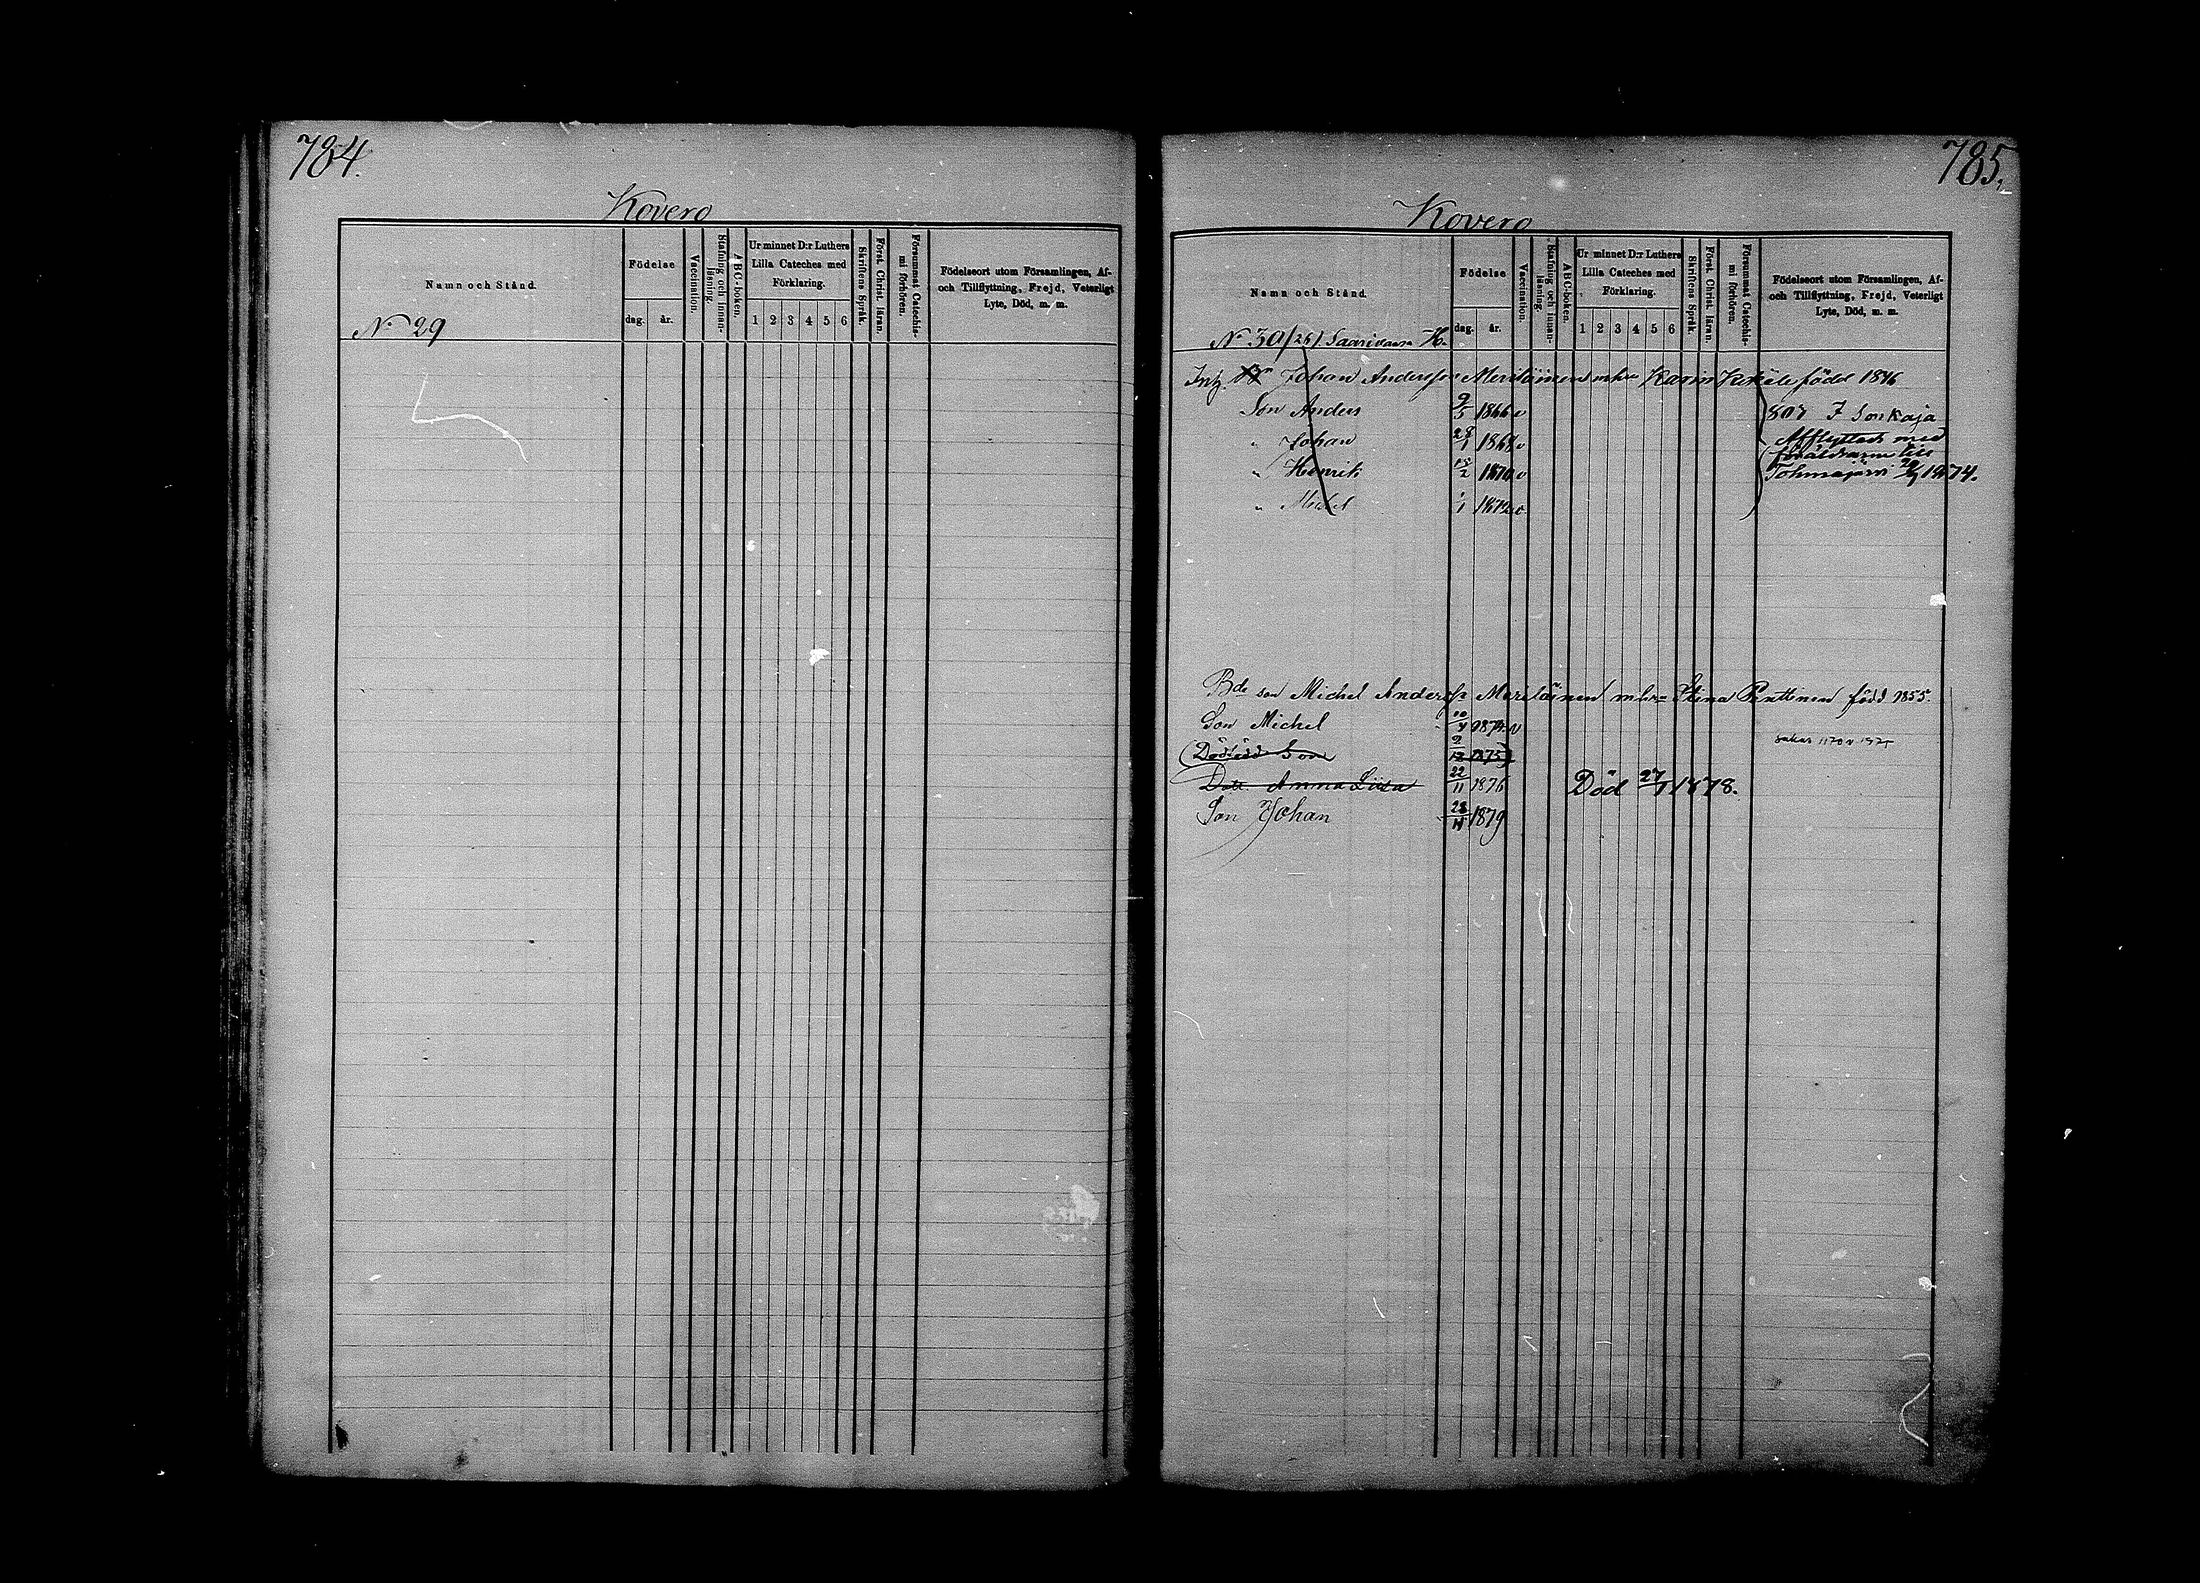 784.
Kovero
Namn och Stånd.
Födelse
dag. år.
Vaccination.
Stafning och innan-
läsning.
ABC-boken.
Ur minnet D:r Luthers
Lilla Cateches med
Förklaring.
1 2 3 4 5 6
Skriftens Språk.
Först. Christ. läran.
Försummat Catechis-
mi förhören.
Födelseort utom Församlingen, Af-
och Tillflyttning, Frejd, Veterligt
Lyte, Död, m. m.
No 29
785.
Kovero
Namn och Stånd.
Födelse
dag. år.
Vaccination.
Stafning och innan-
läsning.
ABC-boken.
Ur minnet D:r Luthers
Lilla Cateches med
Förklaring.
1 2 3 4 5 6
Skriftens Språk.
Först. Christ. läran.
Försummat Catechis-
mi förhören.
Födelseort utom Församlingen, Af-
och Tillflyttning, Frejd, Veterligt
Lyte, Död, m. m.
No 30 /26/ Saarivaara H.
Johan Andersson Meriläinen m hu Karin född 1846
Son Anders 9/5 1866 v
" Johan 28/1 1868 v
" Henrik 15/2 1870 v
" Michel 1/1 1872 v
807 I Sonkaja
Afflyttade med
föräldrarne till
Tohmajärvi 1874.
Bde son Michel Anderss Meriläinen m hu Stina Penttinen född 1855.
Son Michel 10/4 1874 v
(Dödfödd Son 9/12 1875)
Dott Anna Liisa 22/11 1876 Död 27/1 1878.
Son Johan 28/11 1879